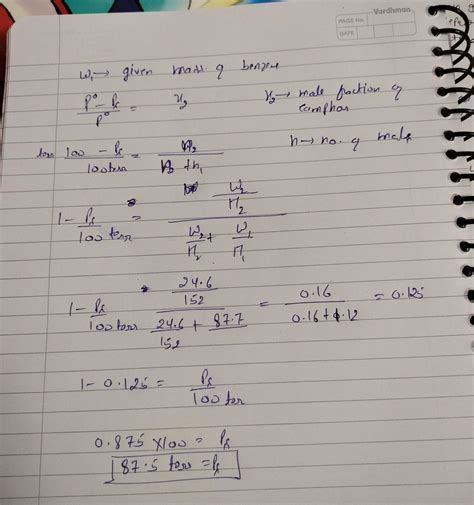 Vardhman
PAGE NO.
DATE
W₁ → given mass of benzene
P° - Ps / P° = x₂
x₂ → mole fraction of camphor
100 - Ps / 100 torr = n₂ / n₂ + n₁
n → no. of moles
1 - Ps / 100 torr = W₂ / M₂ / W₂ / M₂ + W₁ / M₁
1 - Ps / 100 torr = 24.6 / 152 / 24.6 / 152 + 87.7 = 0.16 / 0.16 + 1.12 = 0.125
1 - 0.125 = Ps / 100 torr
0.875 × 100 = Ps
87.5 torr = Ps